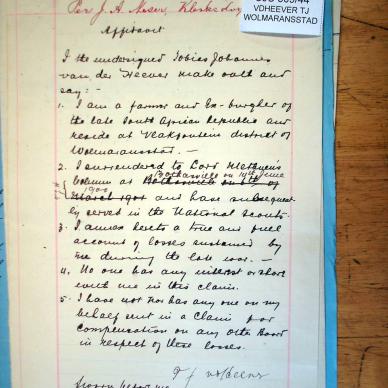 Per J. A. Neser, Klerksdorp
VDHEEVER TJ
WOLMARANSSTAD
Affidavit
I the undersigned Tobias Johannes
van der Heever make oath and
say:-
1. I am a farmer and Ex-burgher of
the late South African Republic and
reside at Vlakfontein district of
Wolmaransstad. -
2. I surrendered to Lord Methuen's
Bothaville on 14th June
1900
Column at Bothaville on 6th of
March 1901 and have subsequent
ly served in the National Scouts.
3. I annex hereto a true and full
account of losses sustained by
me during the late war. -
4. No one has any interest or share
with me in this claim.
5. I have not nor has any one on my
behalf sent in a claim for
compensation on any other Board
in respect of these losses.
T J vd Heever
Sworn before me